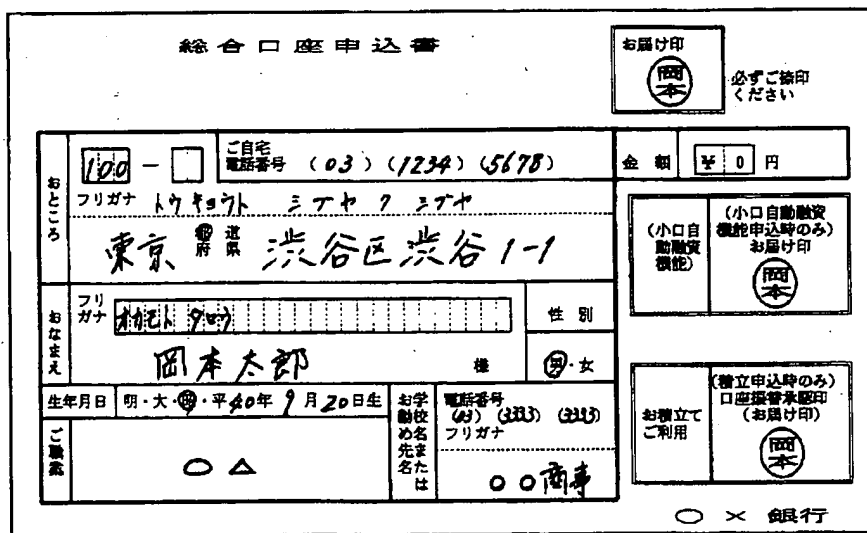 総合口座申込書
お届け印
岡本
必ずご捺印
ください
おところ
100 -
ご自宅
電話番号 (03) (1234) (5678)
金額 ¥ 0 円
フリガナ トウキョウト シブヤク シブヤ
東京 都府 道県 渋谷区渋谷1-1
(小口自動融資機能)
(小口自動融資
機能申込時のみ)
お届け印
岡本
おなまえ
フリガナ オカモト タロウ
性別
岡本太郎 様
男・女
生年月日 明・大・昭・平40年9月20日生
学校名または
お勤め先名
電話番号
(03) (3333) (3333)
フリガナ
○○商事
ご職業
○△
お積立てご利用
(積立申込時のみ)
口座振替承認印
(お届け印)
岡本
○×銀行